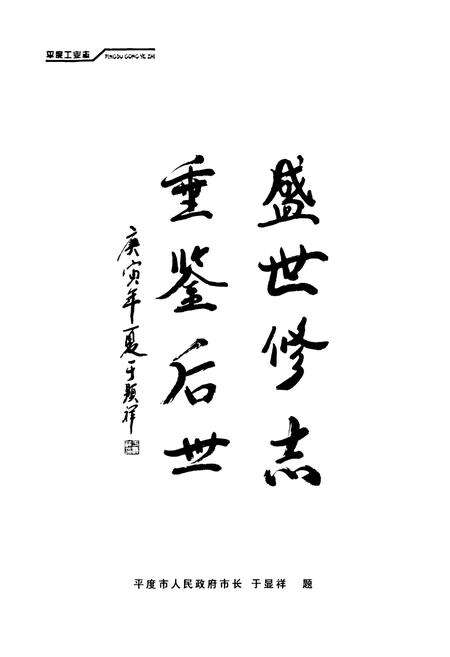 平度工业志
PINGDU GONG YE ZHI
盛世修志
垂鉴后世
庚寅年夏于显祥
平度市人民政府市长 于显祥 题